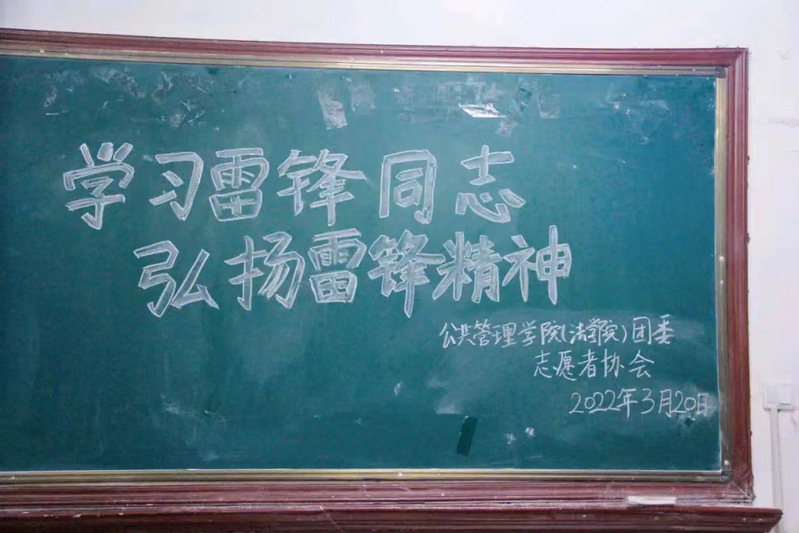 学习雷锋同志
弘扬雷锋精神
公共管理学院(法学院)团委
志愿者协会
2022年3月20日